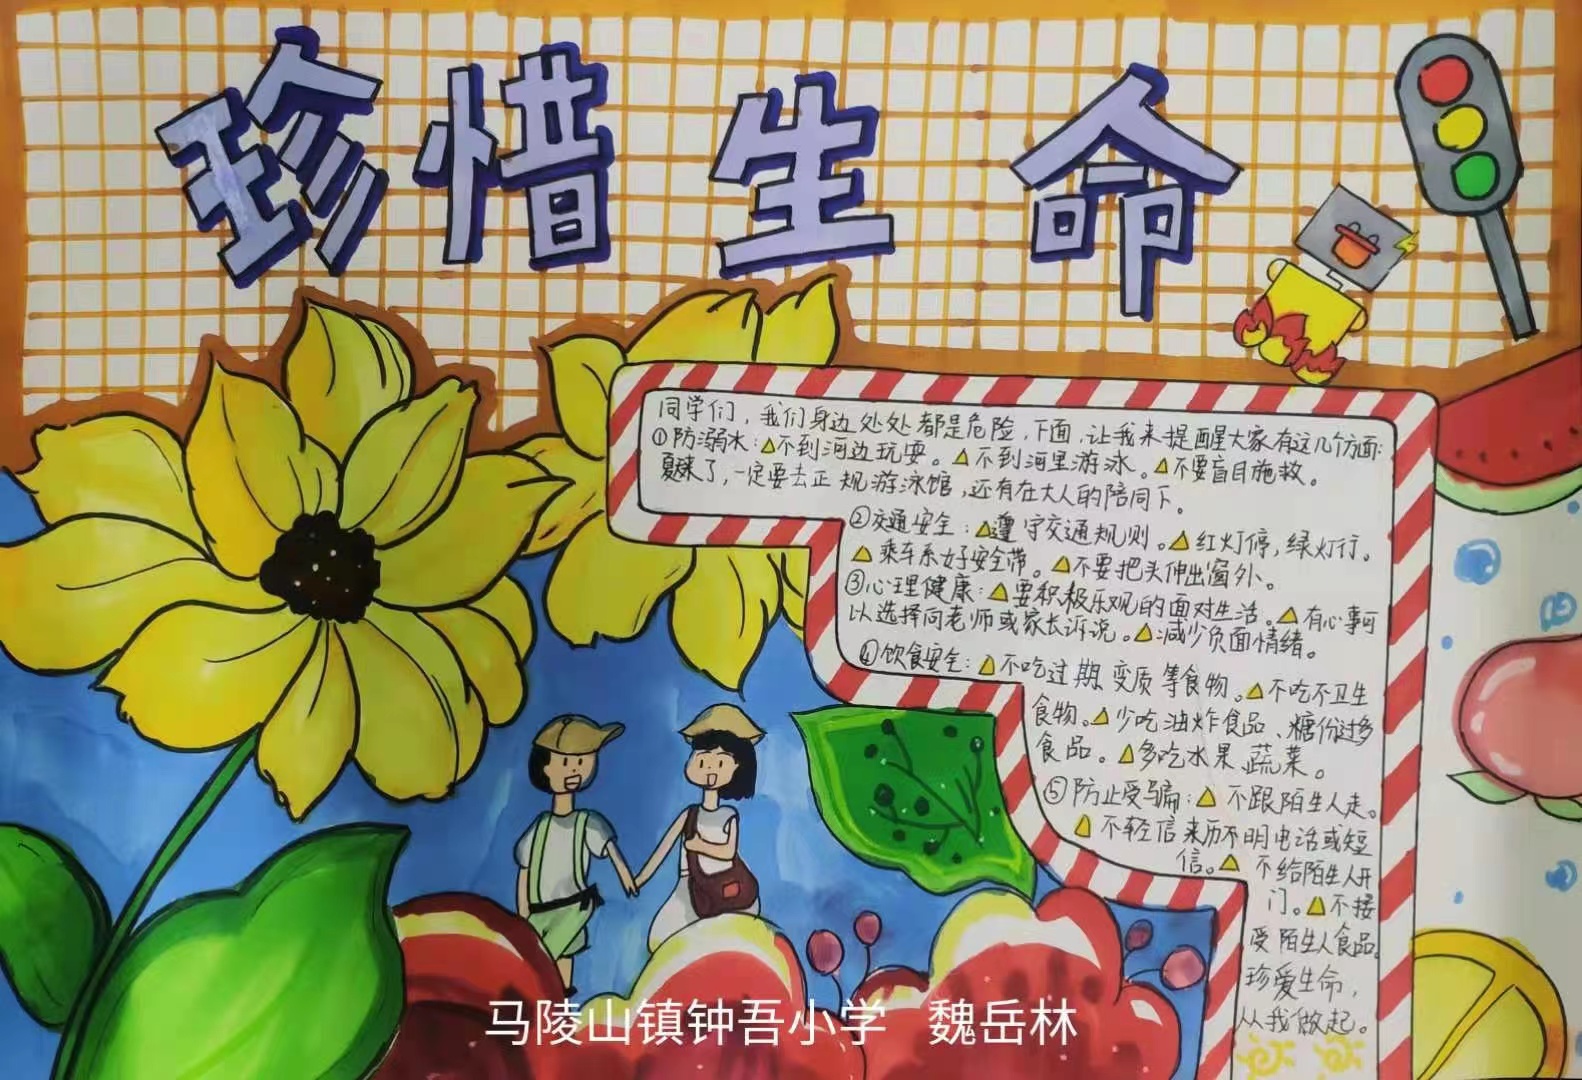 珍惜生命
同学们，我们身边处处都是危险，下面，让我来提醒大家有这几个方面：
①防溺水：△不到河边玩耍。△不到河里游泳。△不要盲目施救。
夏天来了，一定要去正规游泳馆，还有在大人的陪同下。
②交通安全：△遵守交通规则。△红灯停，绿灯行。
△乘车系好安全带。△不要把头伸出窗外。
③心理健康：△要积极乐观的面对生活。△有心事可
以选择向老师或家长诉说。△减少负面情绪。
④饮食安全：△不吃过期、变质等食物。△不吃不卫生
食物。△少吃油炸食品、糖份过多
食品。△多吃水果、蔬菜。
⑤防止受骗：△不跟陌生人走。
△不轻信来历不明电话或短
信。△不给陌生人开
门。△不接
受陌生人食品。
珍爱生命，
从我做起。
马陵山镇钟吾小学 魏岳林